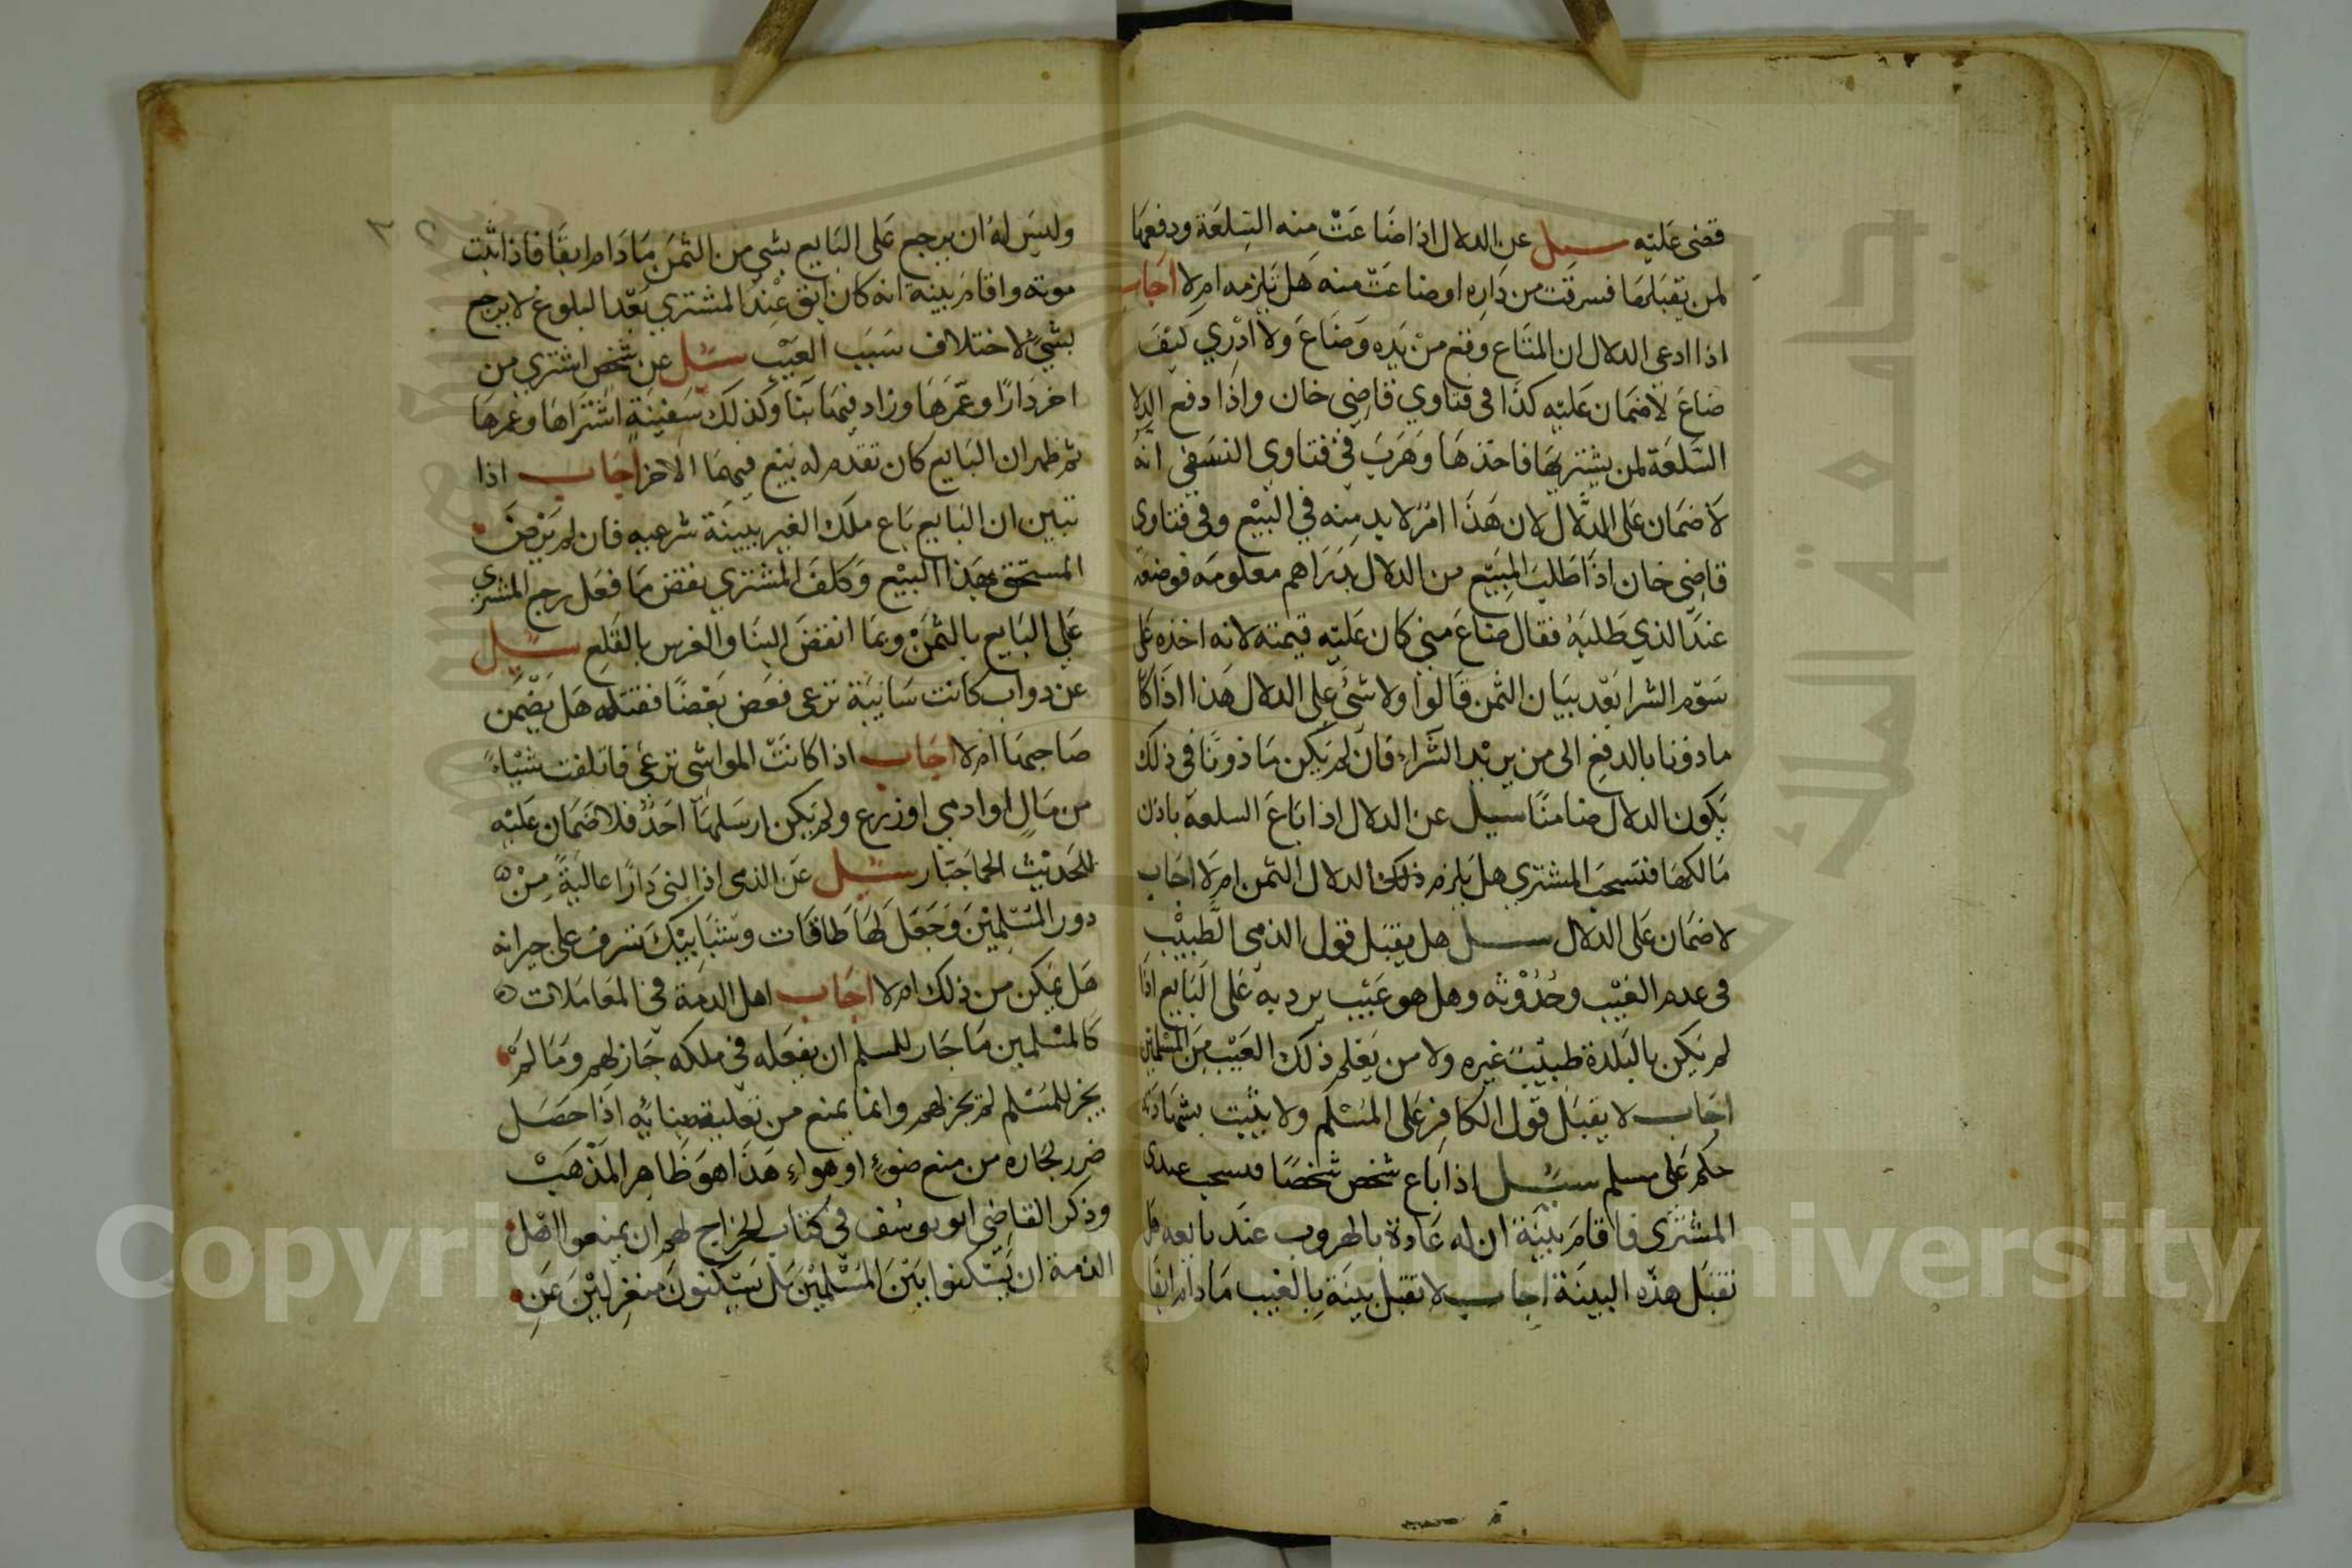 قضى عليه سيل عن الدلال اذا ضاعت منه السلعة ودفعها
لمن يقبلها فسرقت من داره او ضاعت منه هل يلزمه ام لا اجاب
اذا ادعى الدلال ان المتاع وقع من يده وضاع ولا ادري كيف
ضاع لا ضمان عليه كذا في فتاوي قاضي خان واذا دفع الدلا
السلعة لمن يشتريها فاخذها وهرب في فتاوي النسفي انه
لا ضمان على الدلال لان هذا امر لا بد منه في البيع وفي فتاوى
قاضي خان اذا طلب المبيع من الدلال بدراهم معلومه فوضعه
عند الذي طلبه فقال ضاع مني كان عليه قيمته لانه اخذه على
سوم الشرا بعد بيان الثمن قالوا ولا شئ على الدلال هذا اذا كا
ماذونا بالدفع الى من يريد الشراء فان لم يكن ماذونا في ذلك
يكون الدلال ضامنا سيل عن الدلال اذا باع السلعة باذن
مالكها فتسحب المشتري هل يلزم ذلك الدلال الثمن ام لا اجاب
لا ضمان على الدلال سئل هل يقبل قول الذمي الطبيب
في عدم العيب وحدوثه وهل هو عيب يرد به على البايع اذا
لم يكن بالبلدة طبيب غيره ولا من يعلم ذلك العيب من المسلمين
اجاب لا يقبل قول الكافر على المسلم ولا يثبت بشهادته
حكم على مسلم سئل اذا باع شخص شخصا فسحب عبدى
المشتري فاقام بينة ان له عادة بالهروب عند بايعه هل
تقبل هذه البينة اجاب لا تقبل بينة بالعيب ما دام ابقا
وليس له ان يرجع على البايع بشي من الثمن ما دام ابقا فاذا ثبت
موته واقام بينة انه كان ابق عند المشتري بعد البلوغ لا يرجع
بشئ لاختلاف سبب العيب سئل عن شخص اشترى من
اخر دارا وعمرها وزاد فيها بنا وكذلك سفينة اشتراها وعمرها
ثم ظهر ان البايع كان تقدم له بيع فيهما لاخر اجاب اذا
تبين ان البايع باع ملك الغير ببينة شرعيه فان لم يرض
المستحق بهذا البيع وكلف المشتري بنقض ما فعل رجع المشتري
على البايع بالثمن وبما انقض البنا والغرس بالقلع سئل
عن دواب كانت سائبة ترعى فعض بعضا فقتله هل يضمن
صاحبها ام لا اجاب اذا كانت المواشي ترعى فاتلفت شياء
من مال او ادمي او زرع ولم يكن ارسلها احد فلا ضمان عليه
للحديث الجما جبار سئل عن الذمى اذا ابنى دارا عالية من
دور المسلمين وجعل لها طاقات وشبابيك تشرف على جيرانه
هل يمكن من ذلك ام لا اجاب اهل الذمة في المعاملات
كالمسلمين ما جاز للمسلم ان يفعله في ملكه جاز لهم وما لم
يجز للمسلم لم يجز لهم وانما يمنع من تعلية بنائه اذا حصل
ضرر لجاره من منع ضوء او هواء هذا هو ظاهر المذهب
وذكر القاضي ابو يوسف في كتاب الخراج لهم ان يمنعوا اهل
الذمة ان يسكنوا بين المسلمين بل يسكنون منعزلين عن
Copyright © King Saud University
جامعة الملك سعود